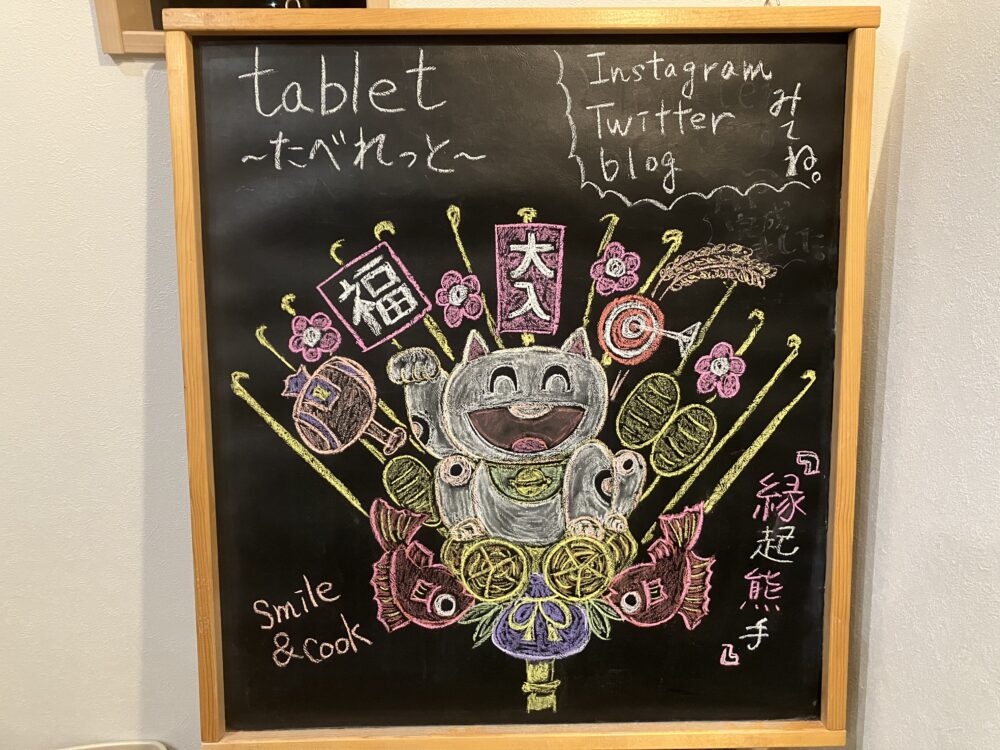 tablet
~たべれっと~
Instagram
Twitter
blog
みてね。
福
大入
『縁起熊手』
Smile
&cook